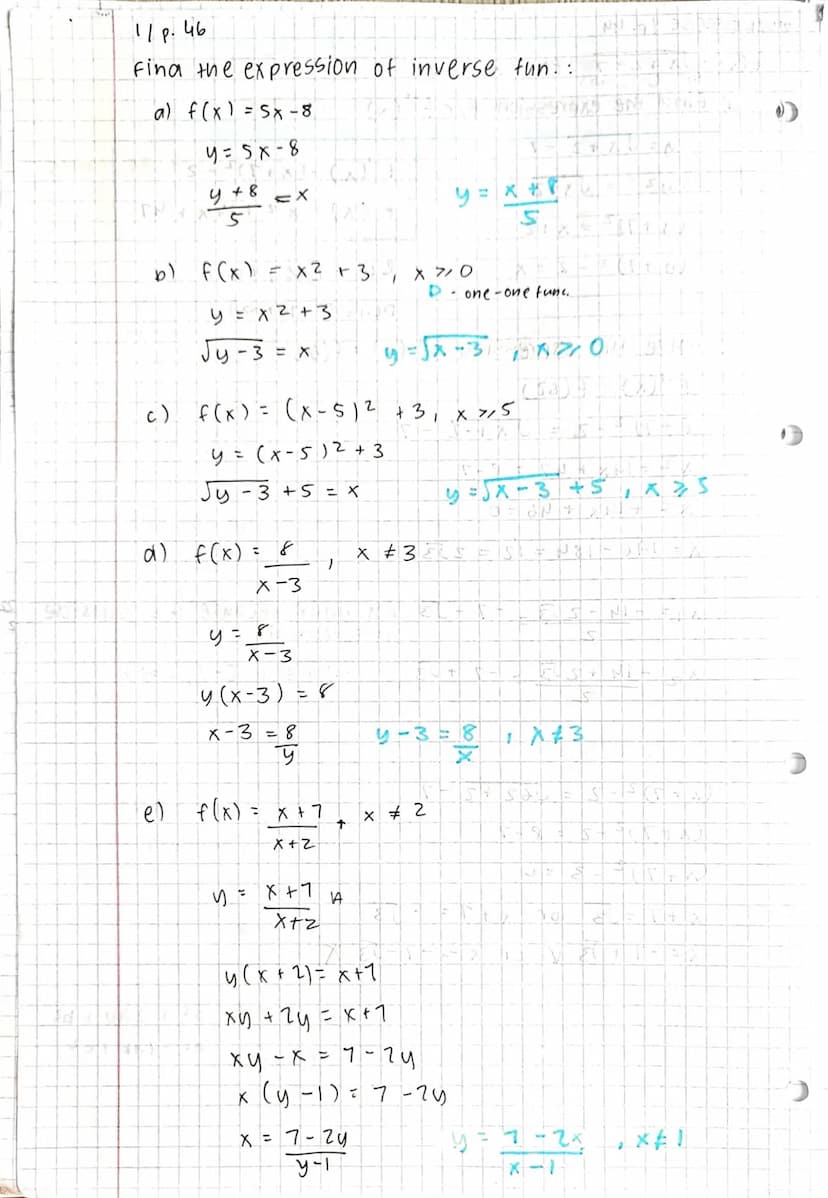 1 / p. 46
Find the expression of inverse fun.:
a) f(x) = 5x - 8
y = 5x - 8
(y + 8)/5 = x    y = (x + 8)/5
b) f(x) = x² + 3, x ⩾ 0
D - one-one func.
y = x² + 3
√(y - 3) = x    y = √(x - 3), x ⩾ 0
c) f(x) = (x - 5)² + 3, x ⩾ 5
y = (x - 5)² + 3
√(y - 3) + 5 = x    y = √(x - 3) + 5, x ⩾ 5
d) f(x) = 8/(x - 3), x ≠ 3
y = 8/(x - 3)
y(x - 3) = 8
x - 3 = 8/y    y - 3 = 8/x, x ≠ 3
e) f(x) = (x + 7)/(x + 2), x ≠ 2
y = (x + 7)/(x + 2)
y(x + 2) = x + 7
xy + 2y = x + 7
xy - x = 7 - 2y
x(y - 1) = 7 - 2y
x = (7 - 2y)/(y - 1)    y = (7 - 2x)/(x - 1), x ≠ 1